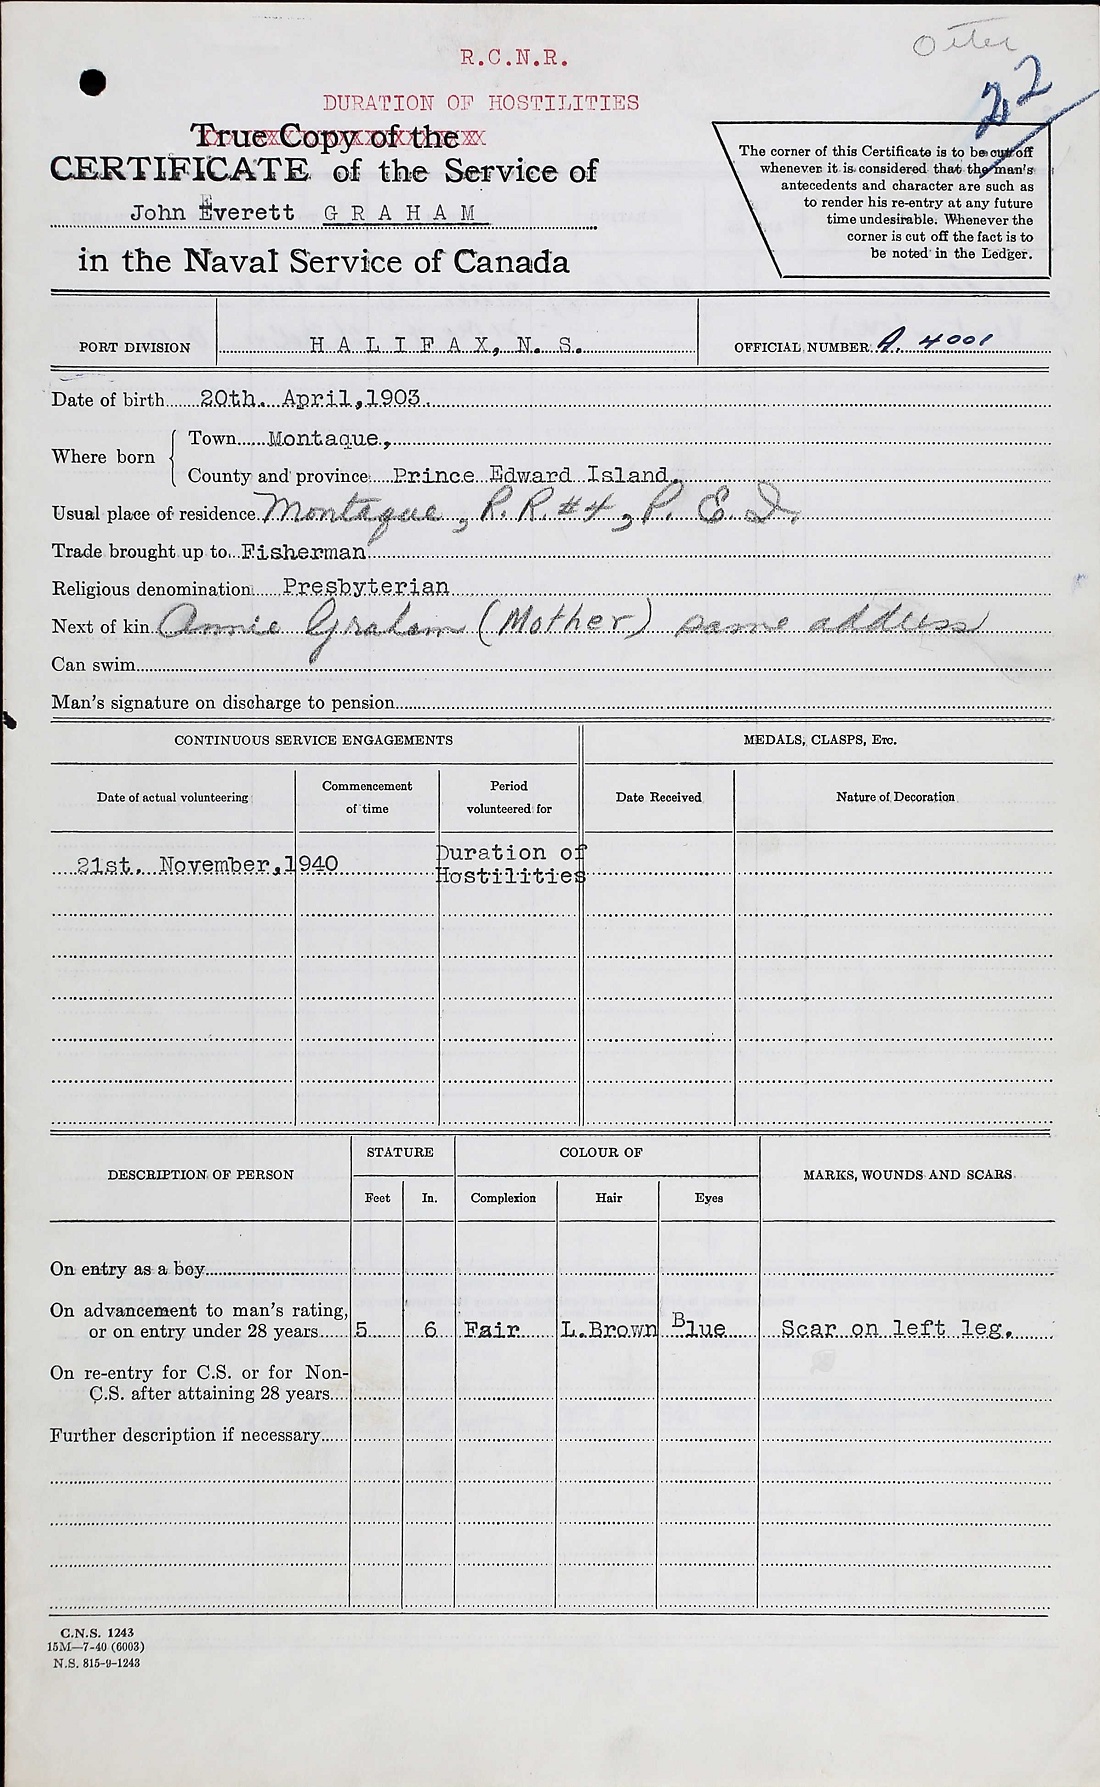 Otter
R.C.N.R.
22
DURATION OF HOSTILITIES
True Copy of the
CERTIFICATE of the Service of
John Everett G R A H A M
in the Naval Service of Canada
The corner of this Certificate is to be cut off
whenever it is considered that the man's
antecedents and character are such as
to render his re-entry at any future
time undesirable. Whenever the
corner is cut off the fact is to
be noted in the Ledger.
PORT DIVISION H A L I F A X, N. S. OFFICIAL NUMBER A. 4001
Date of birth 20th. April, 1903.
Where born
Town Montague,
County and province Prince Edward Island.
Usual place of residence Montague, R.R. #4, P. E. I.
Trade brought up to Fisherman
Religious denomination Presbyterian
Next of kin Annie Graham (Mother) same address
Can swim
Man's signature on discharge to pension
CONTINUOUS SERVICE ENGAGEMENTS MEDALS, CLASPS, ETC.
Date of actual volunteering Commencement of time Period volunteered for Date Received Nature of Decoration
21st. November, 1940 Duration of Hostilities
DESCRIPTION OF PERSON STATURE COLOUR OF MARKS, WOUNDS AND SCARS
Feet In. Complexion Hair Eyes
On entry as a boy
On advancement to man's rating,
or on entry under 28 years 5 6 Fair L.Brown Blue Scar on left leg.
On re-entry for C.S. or for Non-
C.S. after attaining 28 years
Further description if necessary
C.N.S. 1243
15M—7-40 (6003)
N.S. 815-9-1243